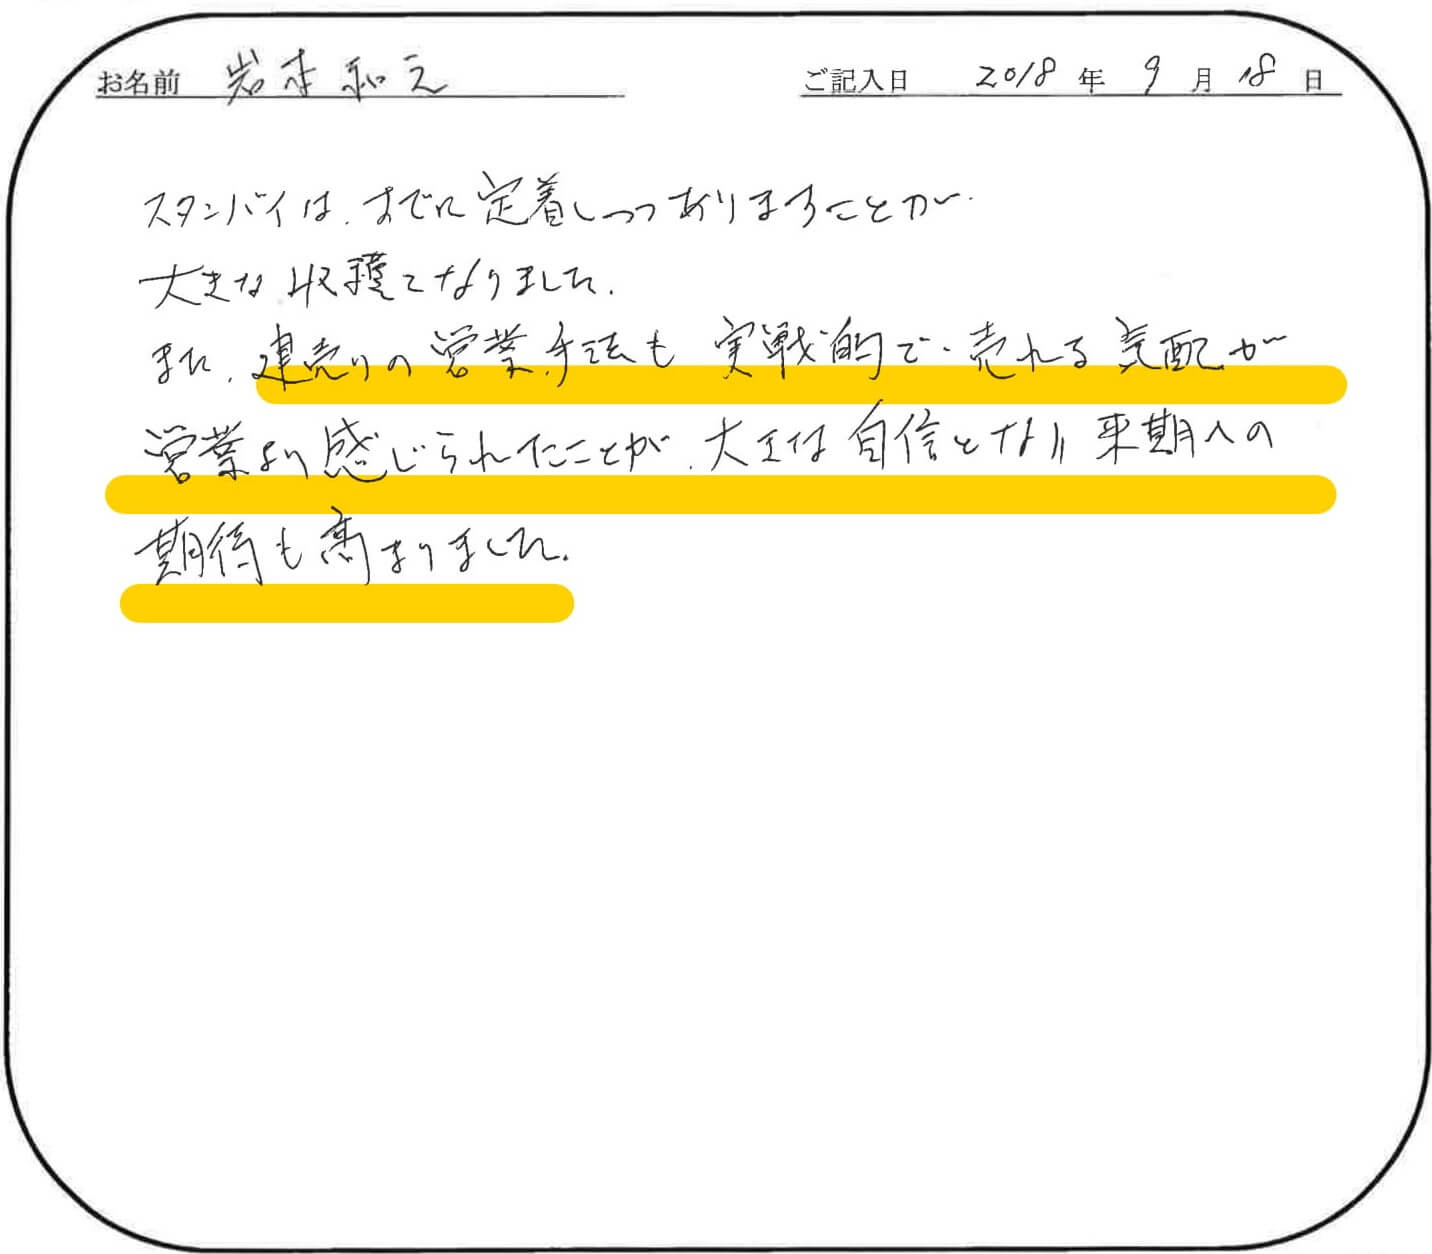 お名前 岩本和之 ご記入日 2018年9月18日
スタンバイは、すでに定着しつつありますことが、
大きな収穫となりました。
また、建売りの営業手法も実戦的で、売れる気配が
営業より感じられたことが、大きな自信となり来期への
期待も高まりました。